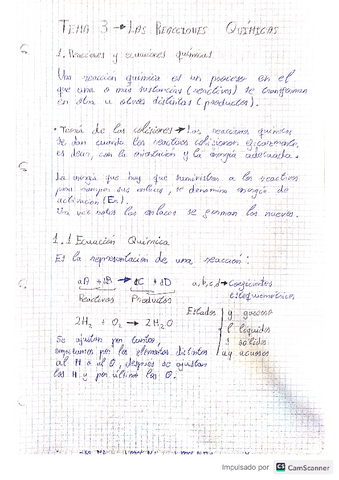 TEMA 3 → LAS REACCIONES QUÍMICAS
1. Reacciones y ecuaciones químicas
Una reacción química es un proceso en el
que una o más sustancias (reactivos) se transforman
en otra u otras distintas (productos).
· Teoría de las colisiones → Las reacciones químicas
se dan cuando los reactivos colisionan eficazmente,
es decir, con la orientación y la energía adecuada.
La energía que hay que suministrar a los reactivos
para romper sus enlaces, se denomina energía de
activación (Ea).
Una vez rotos los enlaces se forman los nuevos.
1.1 Ecuación Química
Es la representación de una reacción:
aA + bB → cC + dD a, b, c, d → Coeficientes
estequiométricos
Reactivos Productos
Estados g gaseoso
l líquidos
s sólidos
aq acuosos
2H₂ + O₂ → 2H₂O
Se ajustan por tanteo,
empezamos por los elementos distintos
al H o al O, después se ajustan
los H y por último los O.
Impulsado por CS CamScanner